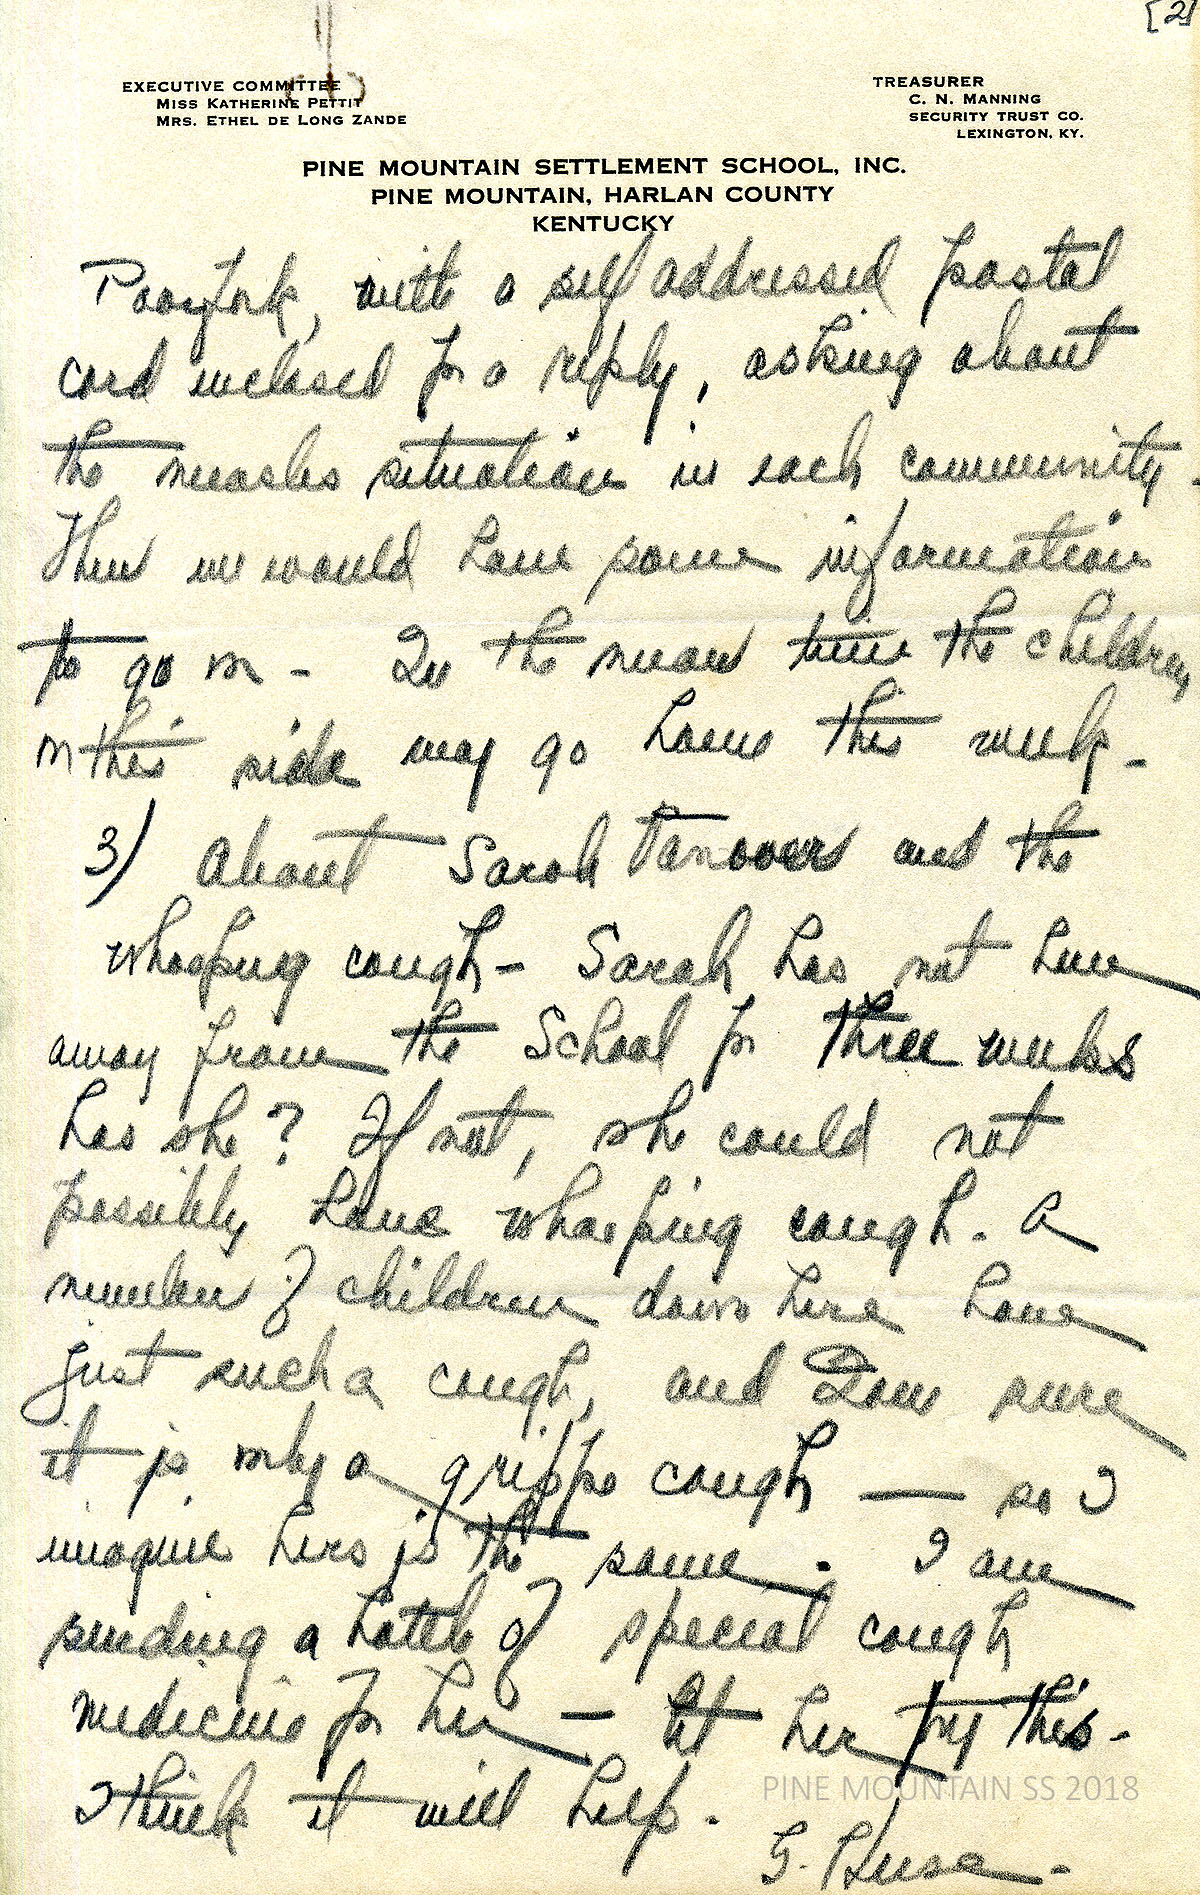 [2]
EXECUTIVE COMMITTEE
MISS KATHERINE PETTIT
MRS. ETHEL DE LONG ZANDE
TREASURER
C. N. MANNING
SECURITY TRUST CO.
LEXINGTON, KY.
PINE MOUNTAIN SETTLEMENT SCHOOL, INC.
PINE MOUNTAIN, HARLAN COUNTY
KENTUCKY
Poorfork, with a self addressed postal
card inclosed for a reply, asking about
the measles situation in each community.
Then we would have some information
to go on - In the mean time the children
on this side may go home this week -
3) About Sarah and the
whooping cough - Sarah has not been
away from the School for three weeks
has she? If not, she could not
possibly have whooping cough. A
number of children down here have
just such a cough, and I am sure
it is only a grippe cough — so I
imagine hers is the same. I am
sending a bottle of special cough
medicine for her — let her try this -
I think it will help.
G. Huse -
PINE MOUNTAIN SS 2018